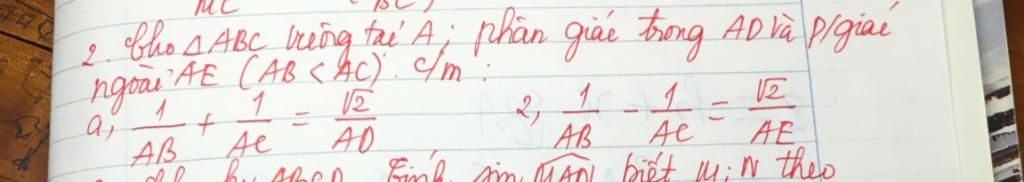 MC BC
2. Cho △ABC vuông tại A; phân giác trong AD và p/giác
ngoài AE (AB < AC). c/m:
a, 1/AB + 1/AC = √2/AD 2, 1/AB - 1/AC = √2/AE
ABCD. Tính sin MAN biết M; N theo